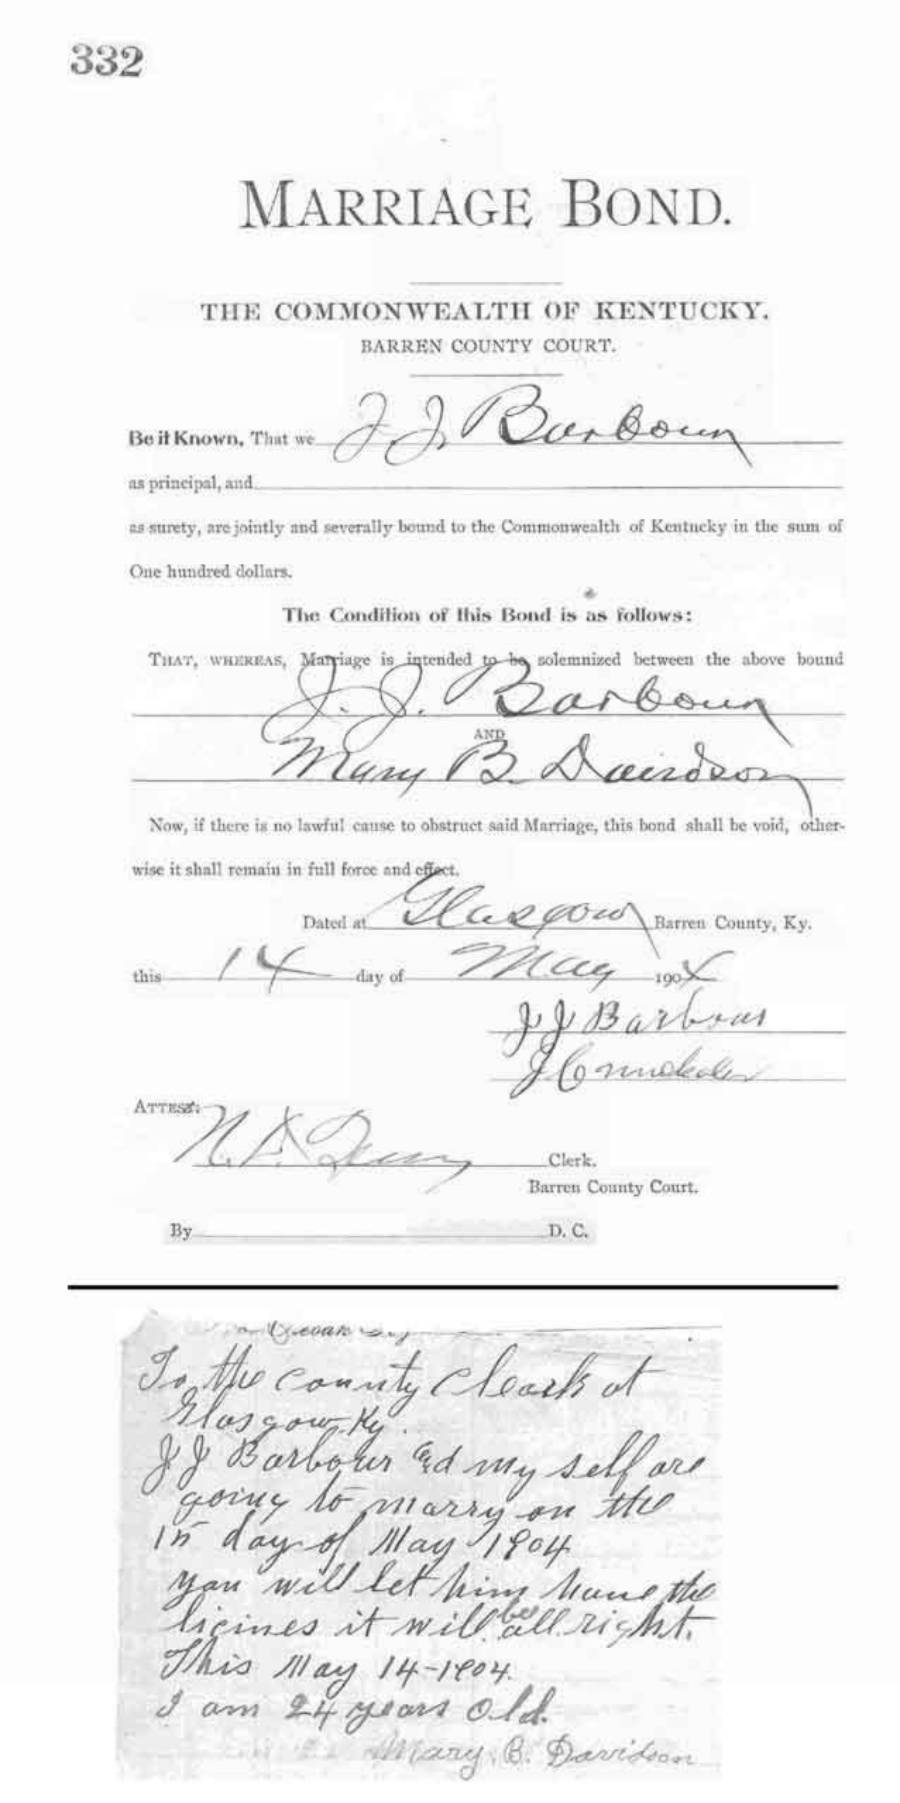 332
MARRIAGE BOND.
THE COMMONWEALTH OF KENTUCKY.
BARREN COUNTY COURT.
Be it Known, That we J. J. Barbour
as principal, and
as surety, are jointly and severally bound to the Commonwealth of Kentucky in the sum of
One hundred dollars.
The Condition of this Bond is as follows:
THAT, WHEREAS, Marriage is intended to be solemnized between the above bound
J. J. Barbour
AND
Mary B. Davidson
Now, if there is no lawful cause to obstruct said Marriage, this bond shall be void, other-
wise it shall remain in full force and effect.
Dated at Glasgow Barren County, Ky.
this 14 day of May 1904
J J Barbour
J C
ATTEST:
N. D. Clerk.
Barren County Court.
By D. C.
To the county Cleark at
Glasgow Ky.
J J Barbour and my self are
going to marry on the
15 day of May 1904
you will let him have the
licines it will be all right.
This May 14-1904.
I am 24 years Old.
Mary. B. Davidson